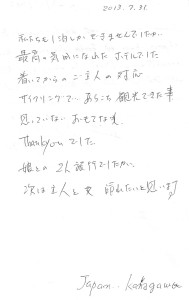 2013.7.31
私たちも1泊しかできませんでしたが
最高の気分になれた ホテルでした
着いてからのご主人の対応
サイクリングで… あちこち観光できた事
思っていない おもてなし
Thankyou でした
娘との2人旅行でしたが
次は主人と 訪れたいと思います
Japan. Kanagawa